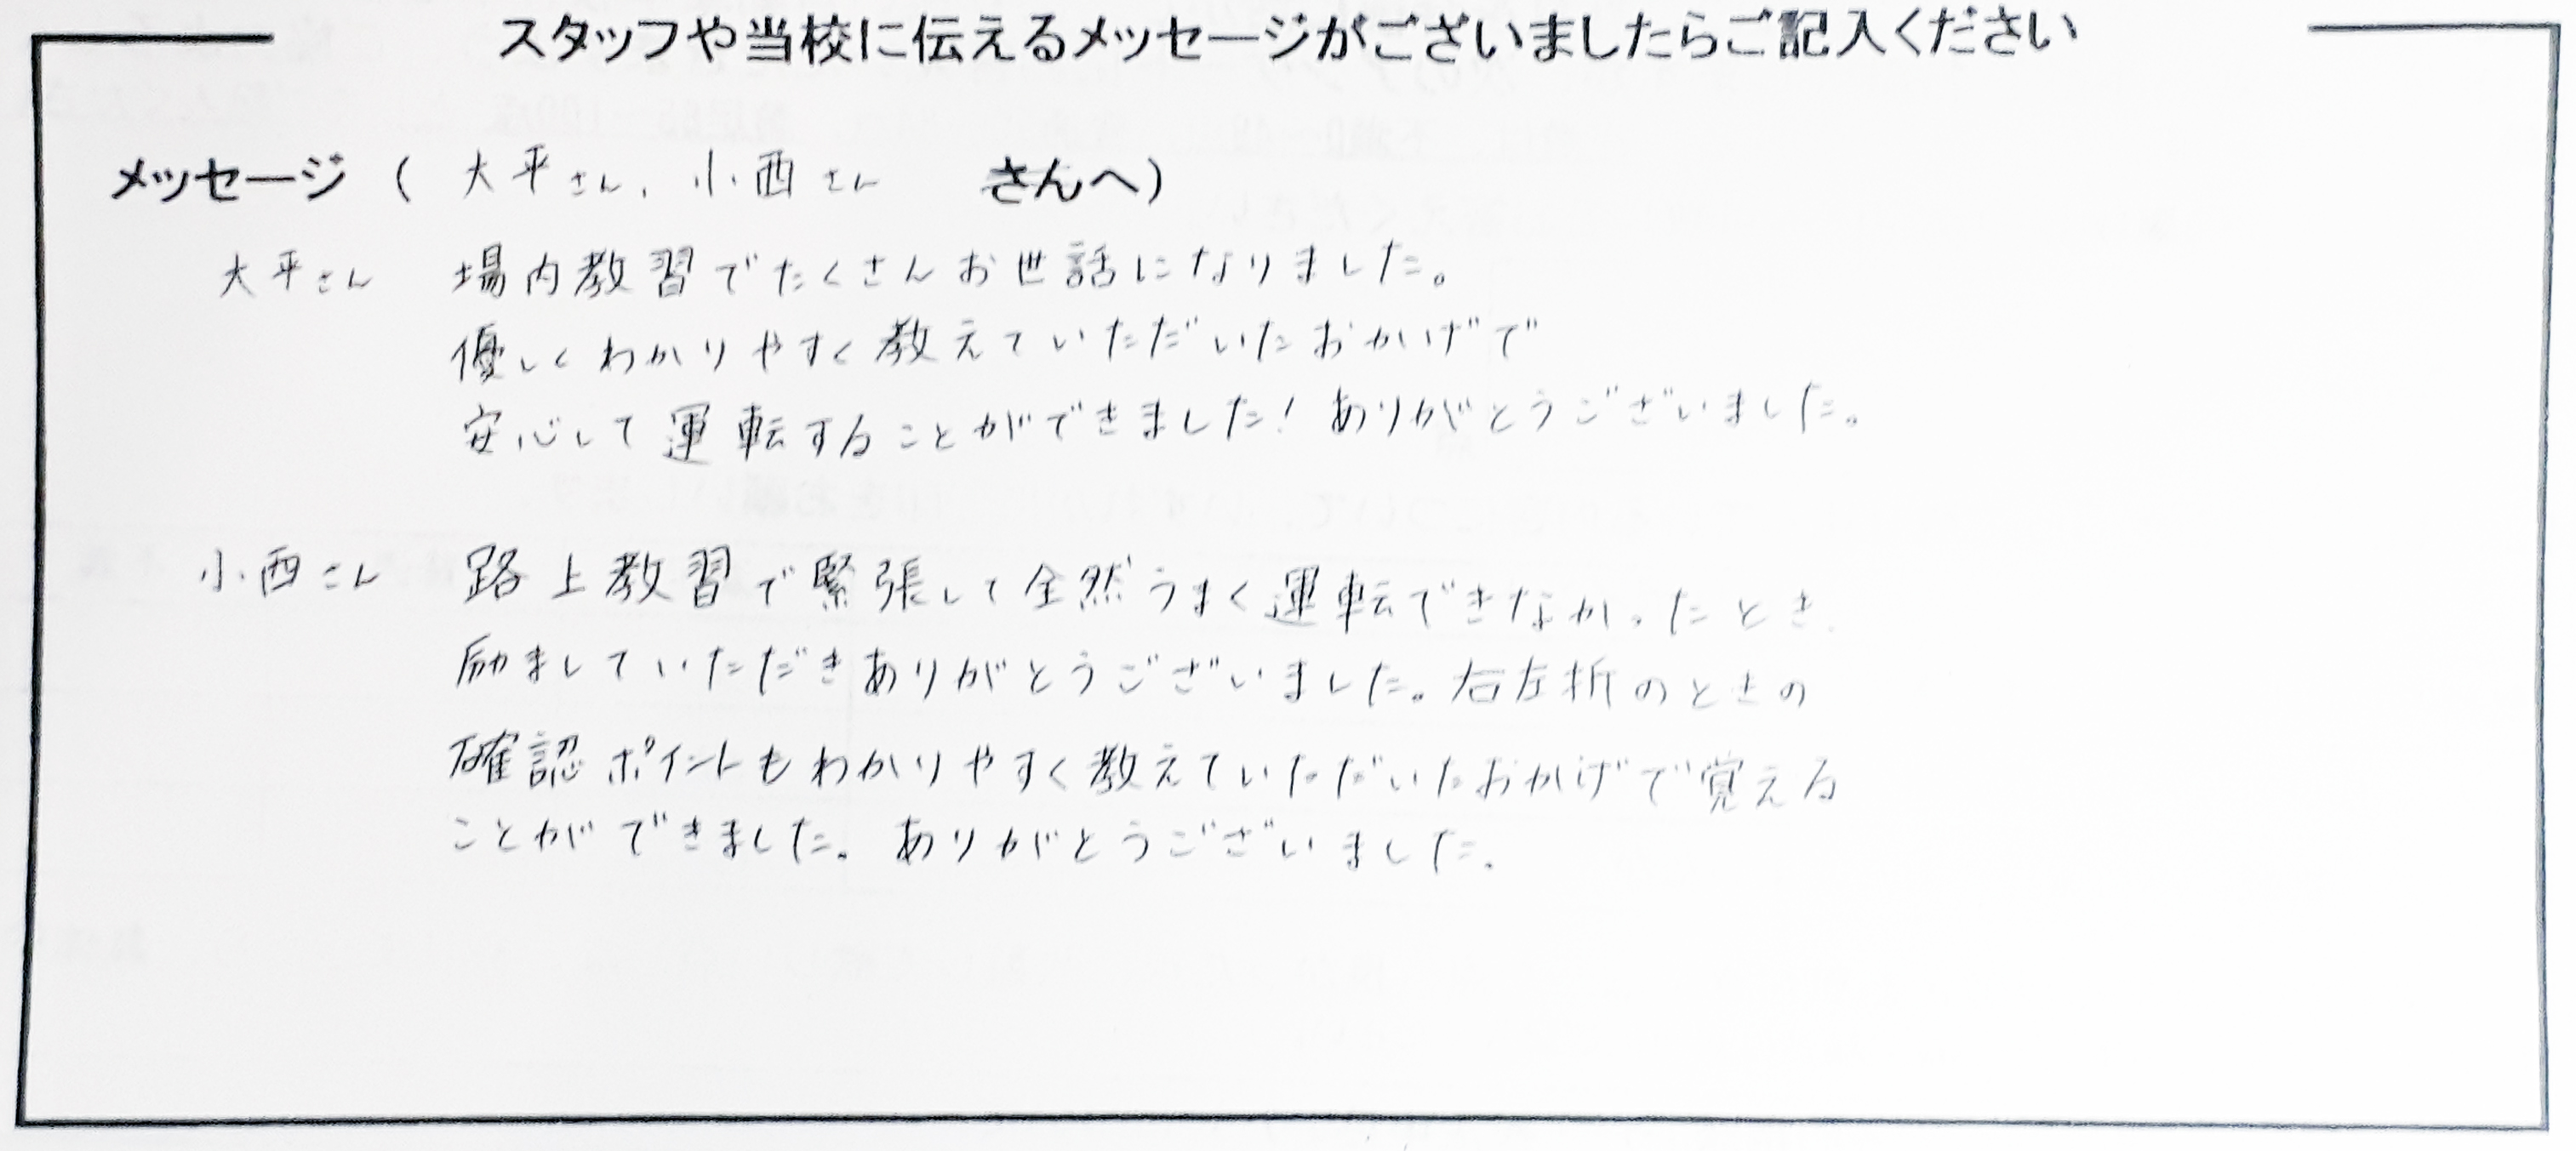 スタッフや当校に伝えるメッセージがございましたらご記入ください
メッセージ ( 大平さん、小西さん さんへ)
大平さん 場内教習でたくさんお世話になりました。
優しくわかりやすく教えていただいたおかげで
安心して運転することができました! ありがとうございました。
小西さん 路上教習で緊張して全然うまく運転できなかったとき、
励ましていただきありがとうございました。右左折のときの
確認ポイントもわかりやすく教えていただいたおかげで覚える
ことができました。ありがとうございました。